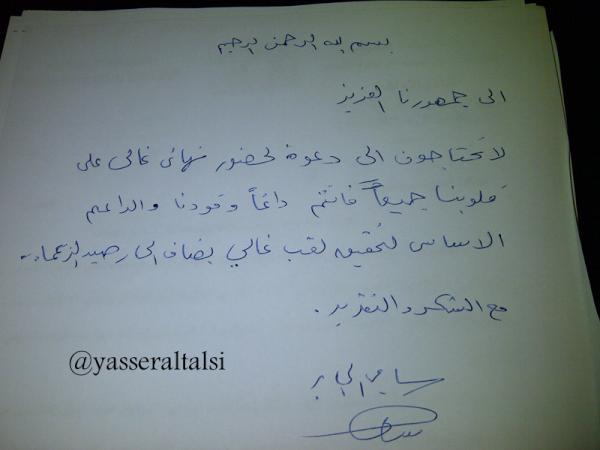 بسم الله الرحمن الرحيم
الى جمهورنا العزيز
لا تحتاجون الى دعوة لحضور نهائي غالي على
قلوبنا جميعاً فانتم دائماً وقودنا والداعم
الاساسي لتحقيق لقب غالي يضاف الى رصيد الزعماء..
مع الشكر والتقدير.
@yasseraltalsi
سامي الجابر